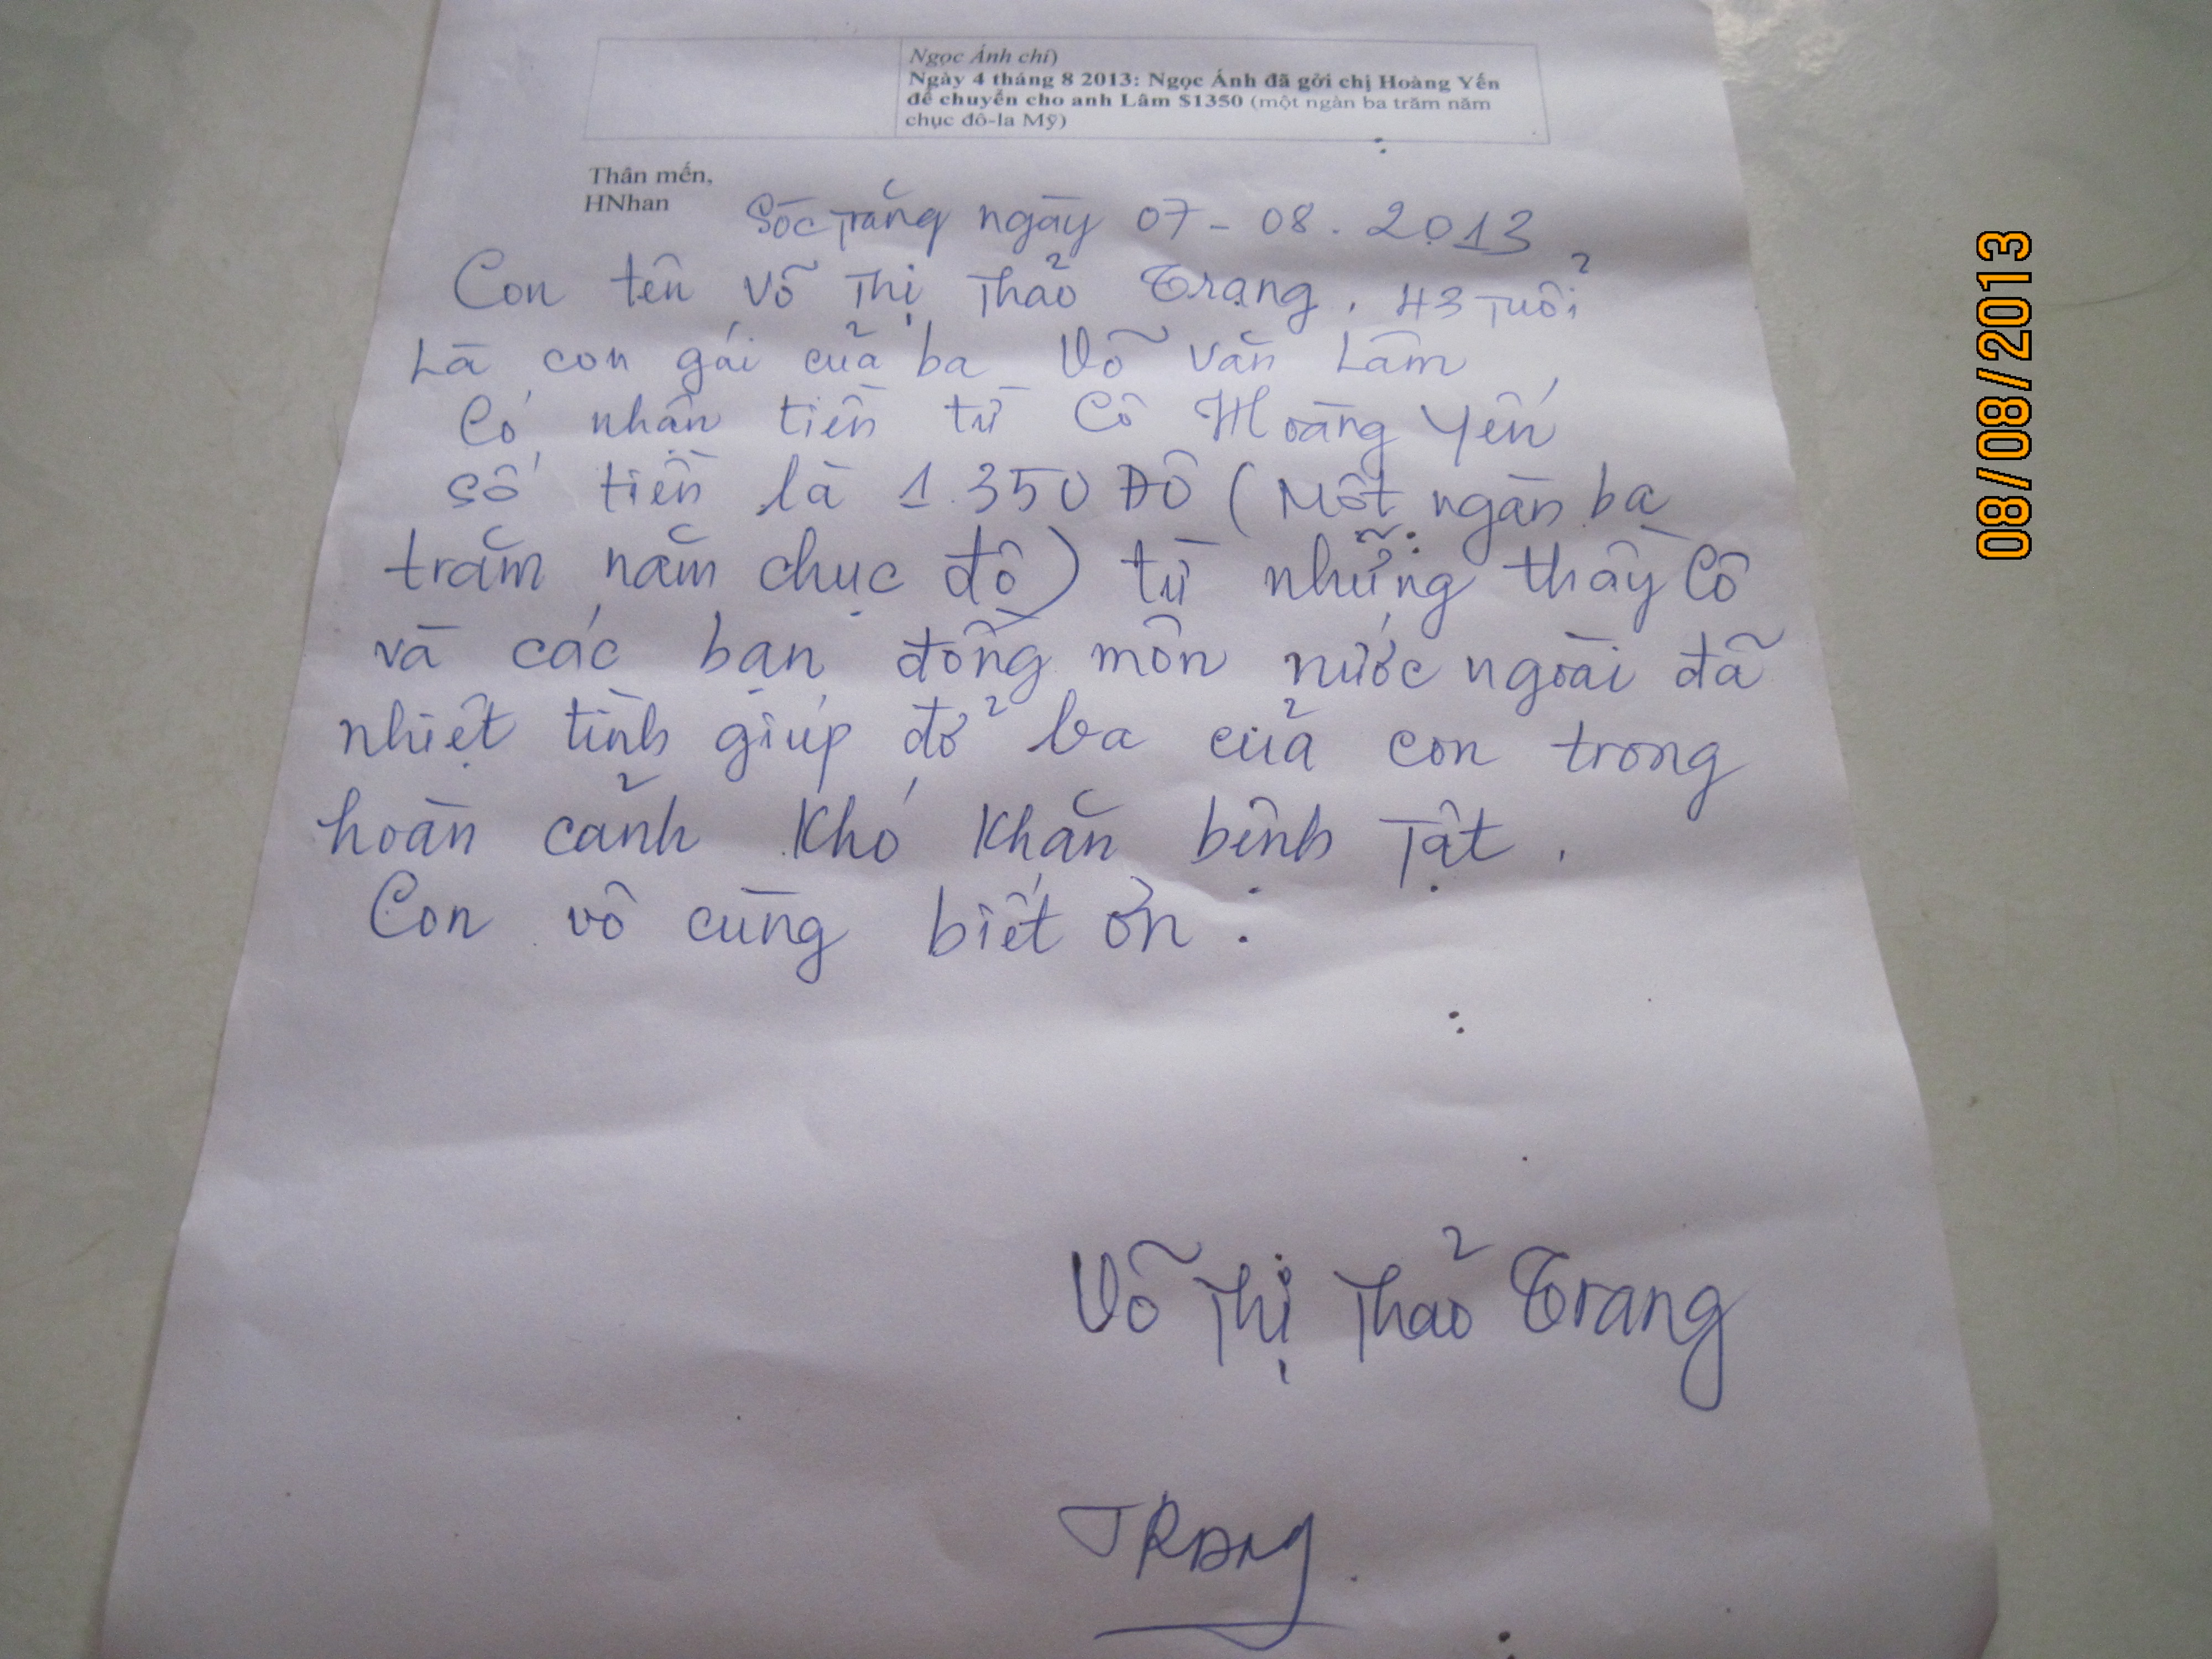 Ngọc Ánh chi)
Ngày 4 tháng 8 2013: Ngọc Ánh đã gởi chị Hoàng Yến
để chuyển cho anh Lâm $1350 (một ngàn ba trăm năm
chục đô-la Mỹ)
Thân mến,
HNhan
Sóc Trăng ngày 07-08.2013
Con tên Võ Thị Thảo Trang, 43 Tuổi
Là con gái của ba Võ Văn Lâm
Có nhận tiền từ Cô Hoàng Yến
số tiền là 1.350 ĐÔ (Một ngàn ba
trăm năm chục đô) từ những thầy cô
và các bạn đồng môn nước ngoài đã
nhiệt tình giúp đở ba của con trong
hoàn cảnh khó khăn bệnh Tật.
Con vô cùng biết ơn.
Võ Thị Thảo Trang
TRANg
08/08/2013